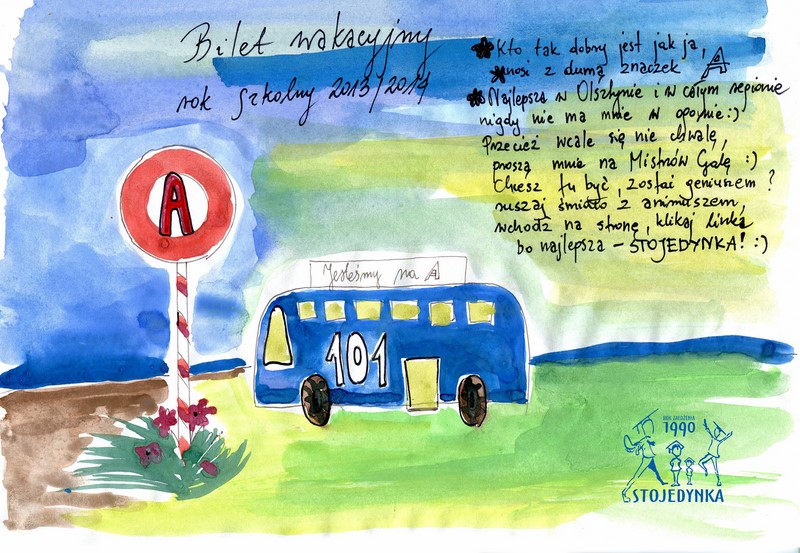 Bilet wakacyjny
rok szkolny 2013/2014
Kto tak dobry jest jak ja,
nosi z dumą znaczek A
Najlepsza w Olsztynie i w całym regionie
nigdy nie ma mnie w ogonie:)
Przecież wcale się nie chwalę,
proszą mnie na Mistrzów Galę :)
Chcesz tu być, zostać geniuszem?
ruszaj śmiało z animuszem,
wchodź na stronę, klikaj linka
bo najlepsza – STOJEDYNKA! :)
A
Jesteśmy na A
101
ROK ZAŁOŻENIA
1990
STOJEDYNKA